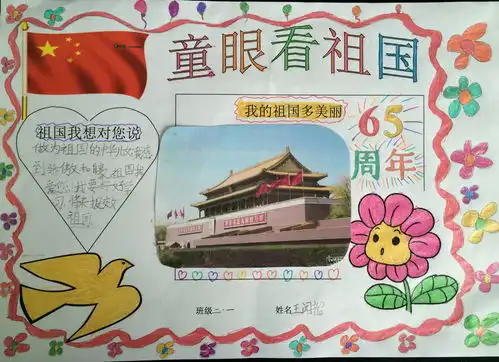 童眼看祖国
祖国我想对您说
我的祖国多美丽
65
周年
做为祖国的
到骄傲和
祖国我
爱您我要好好
习将来报效
祖国
班级二·一
姓名王